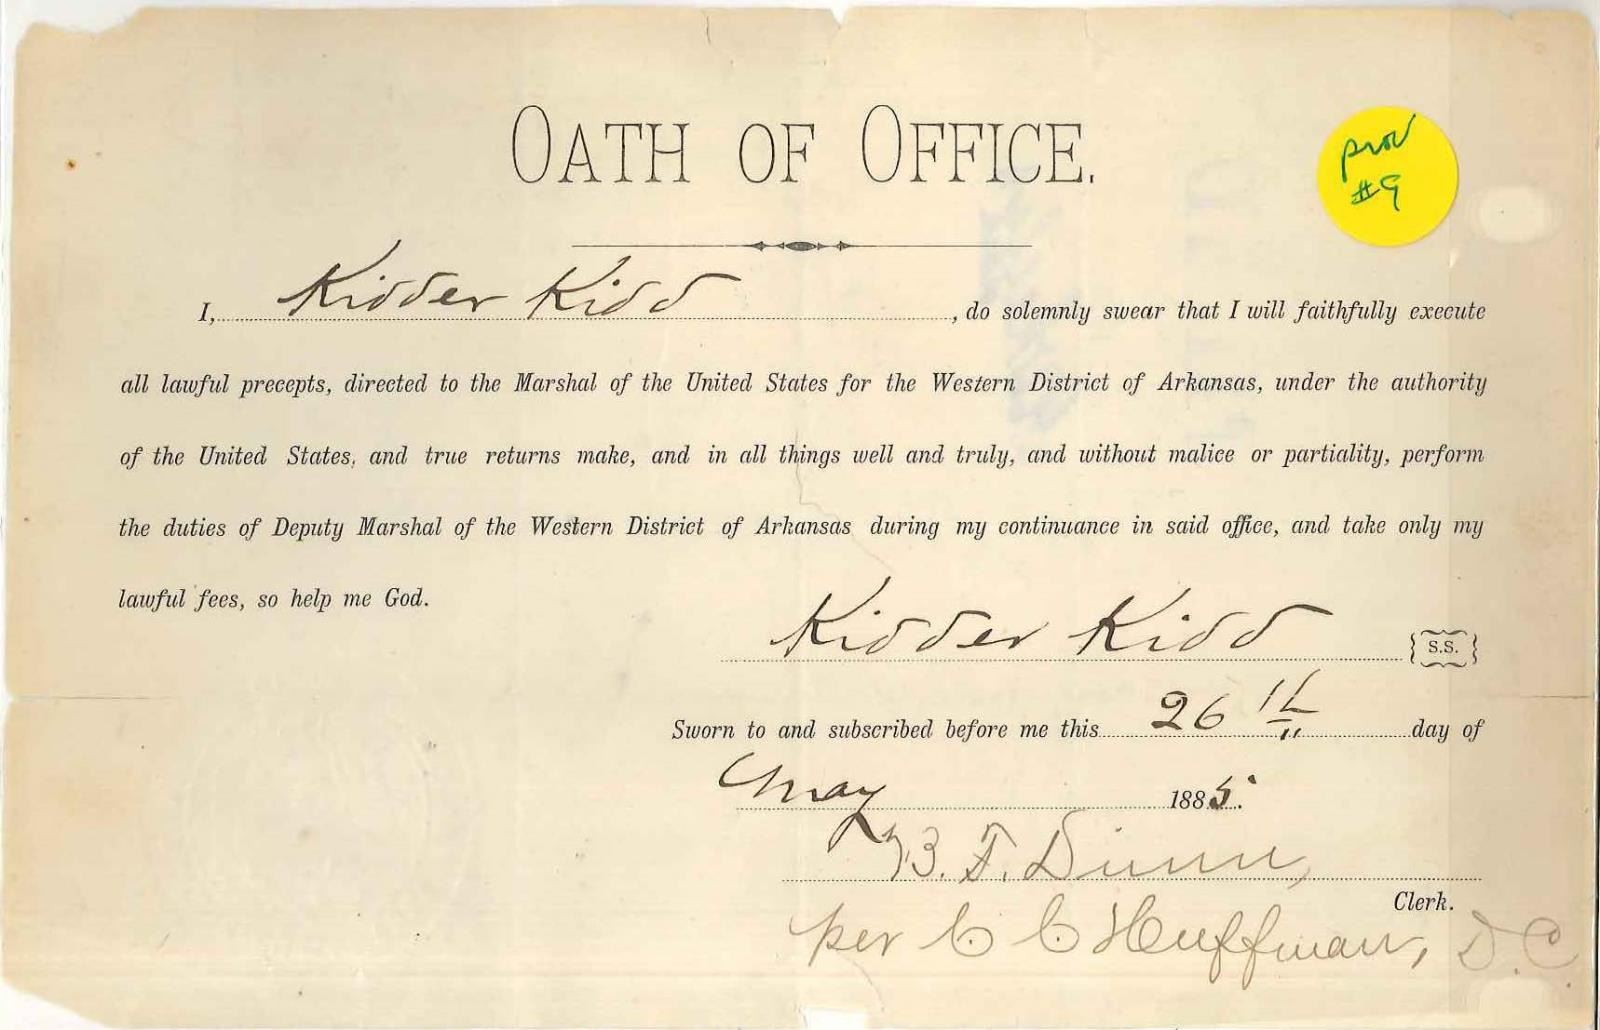 OATH OF OFFICE.
prov
#9
I, Kidder Kidd , do solemnly swear that I will faithfully execute
all lawful precepts, directed to the Marshal of the United States for the Western District of Arkansas, under the authority
of the United States, and true returns make, and in all things well and truly, and without malice or partiality, perform
the duties of Deputy Marshal of the Western District of Arkansas during my continuance in said office, and take only my
lawful fees, so help me God.
Kidder Kidd {S.S.}
Sworn to and subscribed before me this 26th day of
May 1885.
B. F. Dunn,
Clerk.
per C C Huffman, D.C